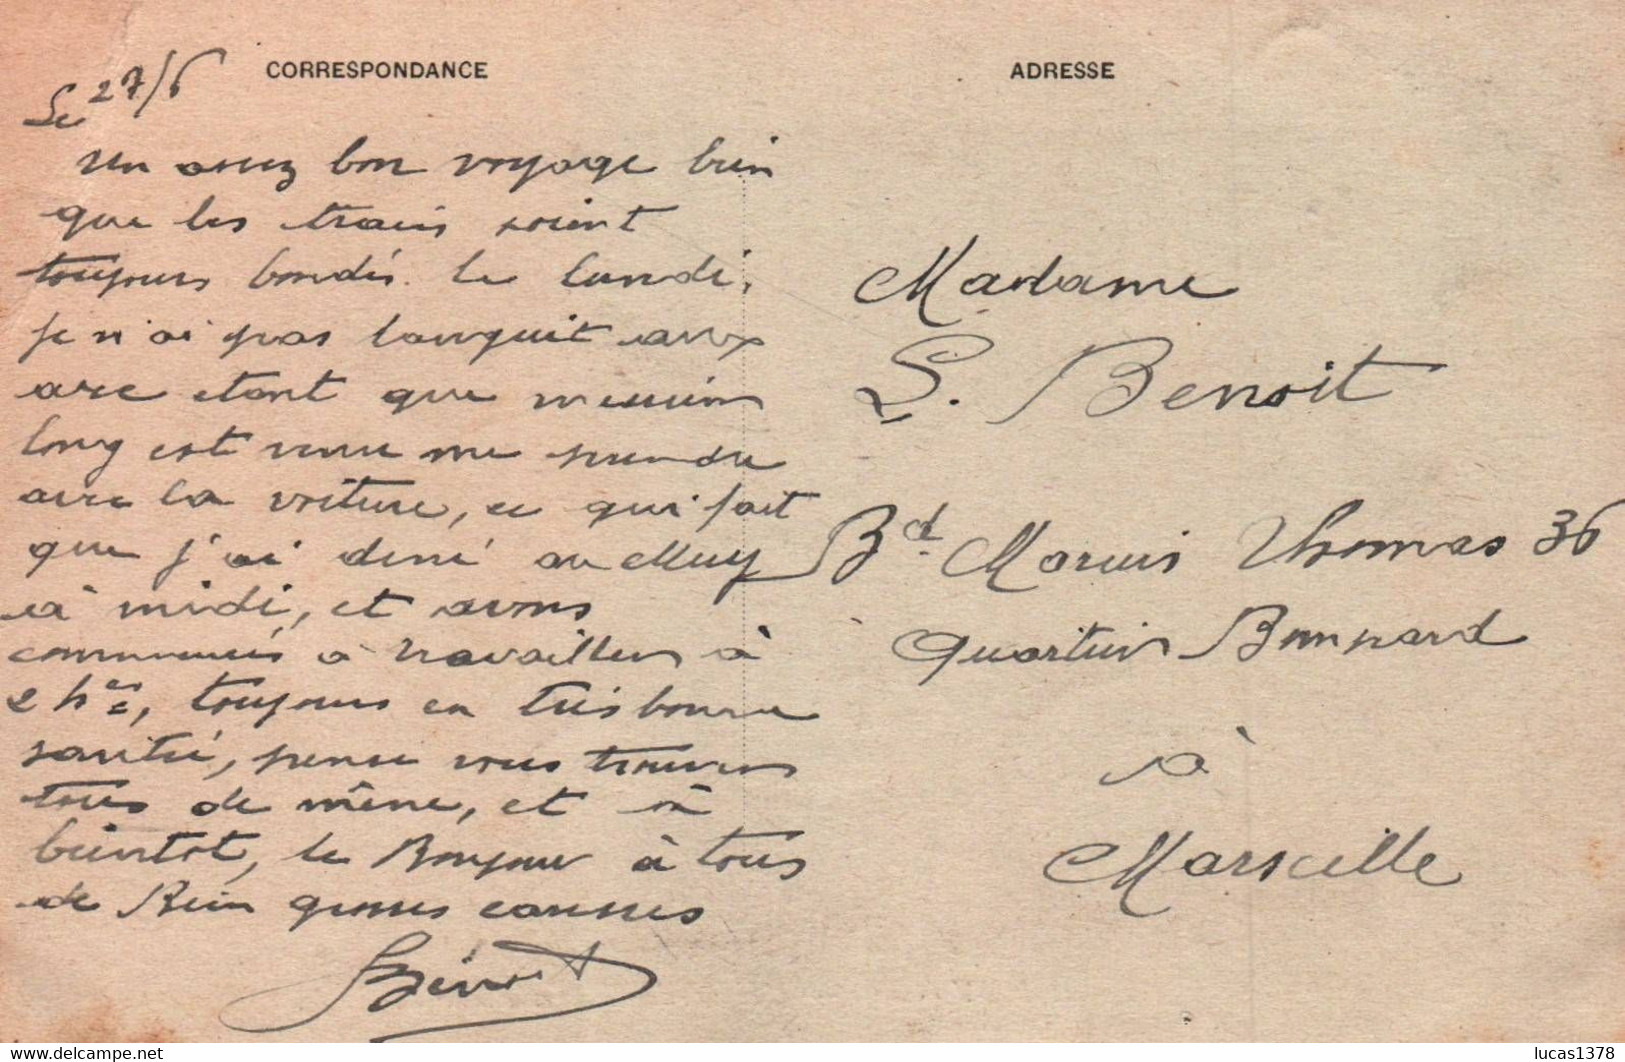 CORRESPONDANCE
Le 27/6
un assez bon voyage bien
que les trains soient
toujours bondés. le lundi,
je n'ai pas languit aux
arc etant que messieur
long est venu me prendre
avec la voiture, ce qui fait
que j'ai diné au Muy
à midi, et avons
commencés à travailler à
2 hres, toujours en très bonne
santé, pense vous trouver
tous de même, et à
bientot, le Bonjour à tous
de Bien grosses caresses
Bénoit
ADRESSE
Madame
L. Benoit
Bd. Marius Thomas 36
Quartier Bompard
à
Marseille
lucas1378